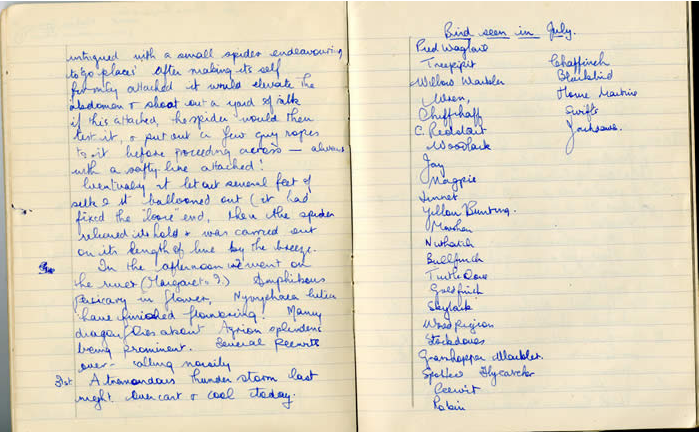 intrigued with a small spider endeavouring
to 'go places' after making its self
firmly attached it would elevate the
abdomen & shoot out a yard of silk
if this attached, the spider would then
test it, & put out a few guy ropes
to it before proceeding across — always
with a safty line attached!
Eventually it let out several feet of
silk & it ballooned out (it had
fixed the "loose" end, then the spider
released its hold & was carried out
on its length of line by the breeze.
In the afternoon we went on
the river (Margaret & I.) Amphibious
persicary in flower, Nymphaea
have finished flowering! Many
dragon flies about Agrion splendens
being prominent. Several Peewits
over - calling noisily
31st A tremendous thunder storm last
night. Overcast & cool today.
Bird seen in July.
Pied Wagtail
Treepipit
Willow Warbler
Wren,
Chiffchaff
C. Redstart
Woodlark
Jay
Magpie
Linnet
Yellow Bunting.
Nuthatch
Bullfinch
Turtle Dove
Goldfinch
Skylark
Wood Pigeon
Stockdoves
Grasshopper Warbler.
Spotted Flycatcher
Peewit
Robin
Chaffinch
Blackbird
House Martins
Swifts
Jackdaws.